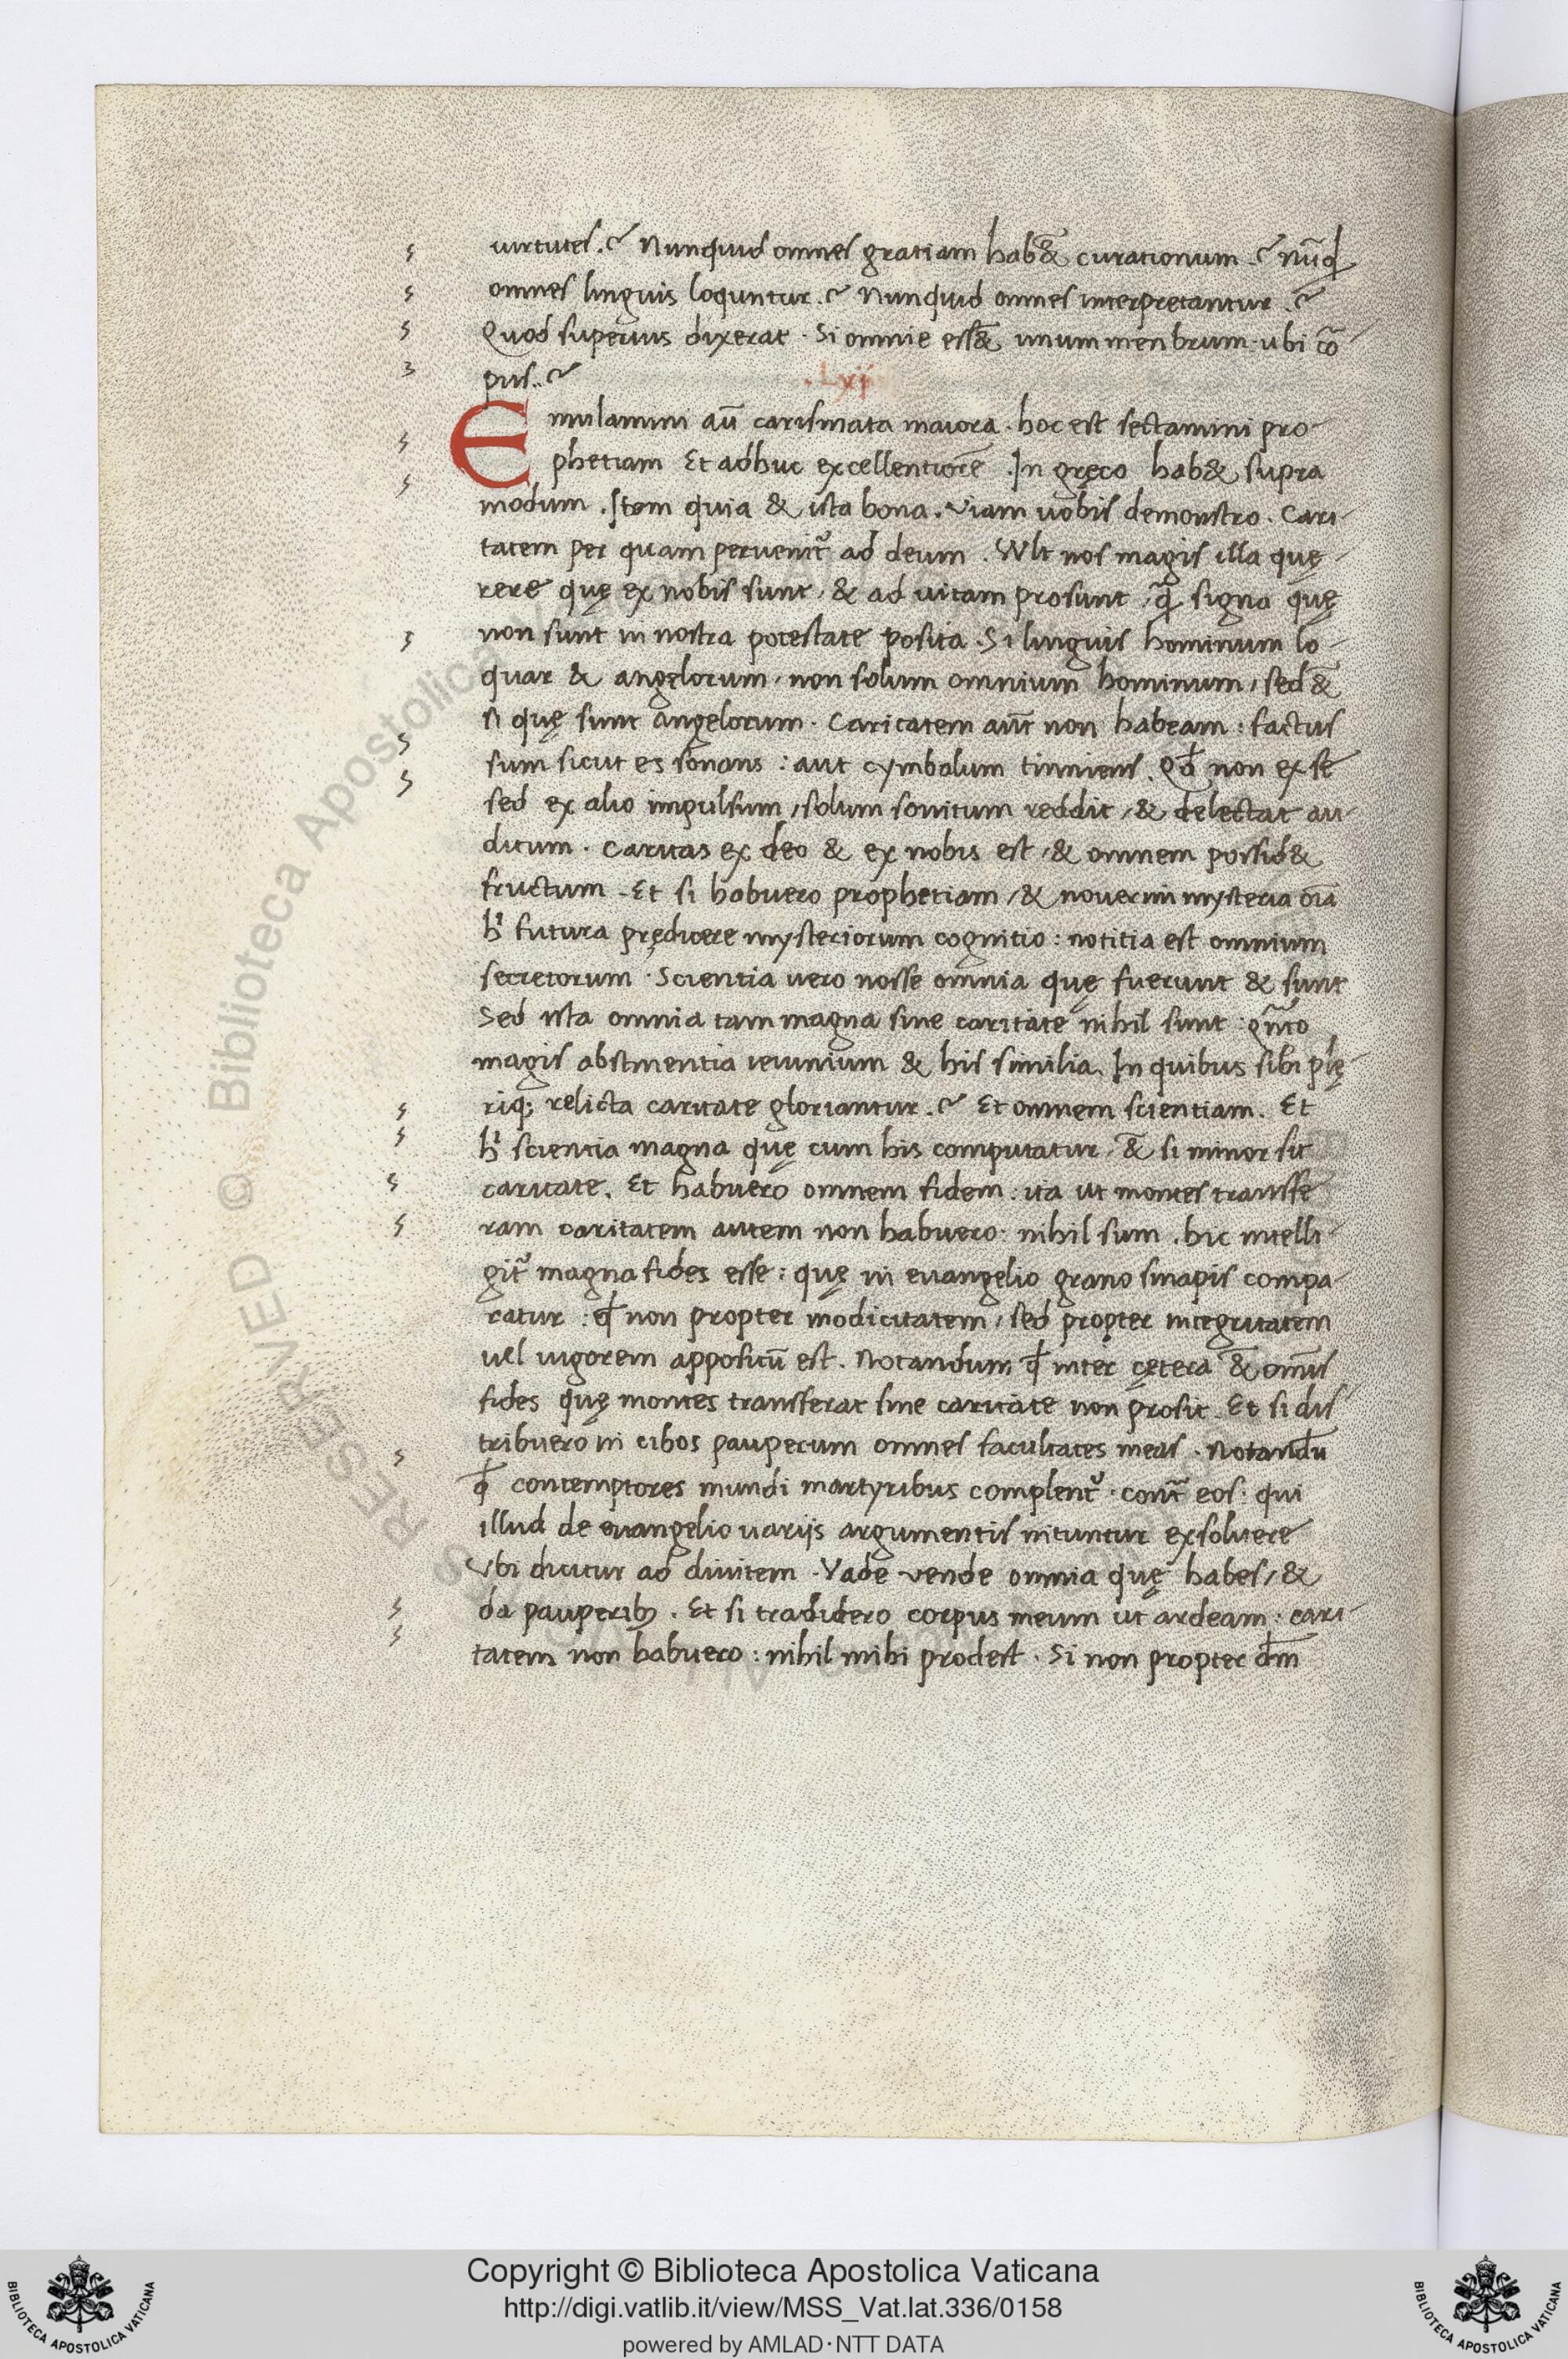 virtutes.? Nunquid omnes gratiam hab&̄ curationum.? nūqd
omnes linguis loquntur.? Nunquid omnes interpretantur.?
Quod superius dixerat. Si omnie ess&̄ unum menbrum. ubi cō
pus..?
.Lxij
Emulamini aū carismata maiora. hoc est sectamini pro-
phetiam Et adhuc excellentiorē. In gręco hab& supra
modum. Item quia & ista bona. Viam uobis demonstro. Cari-
tatem per quam peruenit᷑ ad deum. Wlt nos magis illa quę-
rere quę ex nobis sunt, & ad uitam prosunt, q̄ signa quę
non sunt in nostra potestate posita. Si linguis hominum lo-
quar & angelorum, non solum omnium hominum, sed &̄
n quę sunt angelorum. Caritatem aūt non habeam: factus
sum sicut es sonans: aut cymbalum tinniens. Qd̄ non ex se
sed ex alio impulsum, solum sonitum reddit, & delectat au-
ditum. Caritas ex deo & ex nobis est, & omnem possid&
fructum. Et si habuero prophetiam, & nouerim mysteria oīa
hͥ futura prędicere mysteriorum cognitio: notitia est omnium
secretorum. Scientia uero nosse omnia quę fuerunt & sunt
Sed ista omnia tam magna sine caritate nihil sunt: qn̄to
magis abstinentia ieiunium & his similia. In quibus sibi plę-
riq; relicta caritate gloriantur.? Et omnem scientiam. Et
hͥ scientia magna quę cum his computatur, &̄ si minor sit
caritate. Et habuero omnem fidem: ita ut montes transfe-
ram caritatem autem non habuero: nihil sum. hic intelli-
git᷑ magna fides esse: quę in euangelio grano sinapis compa-
ratur: qd̄ non propter modicitatem, sed propter integritatem
uel uigorem appositū est. Notandum qd̄ inter cętera &̄ omīs
fides quę montes transferat sine caritate non prosit. Et si dis
tribuero in cibos pauperum omnes facultates meas. Notandū
qd̄ contemptores mundi martyribus complent᷑. cont̄ eos: qui
illud de euangelio uarijs argumentis nituntur exsoluere
Vbi dicitur ad diuitem. Vade vende omnia quę habes, &
da pauperibȝ. Et si tradidero corpus meum ut ardeam: cari-
tatem non habuero: nihil mihi prodest. Si non propter dm̄
RESERVED © Biblioteca Apostolica
Copyright © Biblioteca Apostolica Vaticana
http://digi.vatlib.it/view/MSS_Vat.lat.336/0158
powered by AMLAD·NTT DATA
BIBLIOTECA APOSTOLICA VATICANA
BIBLIOTECA APOSTOLICA VATICANA